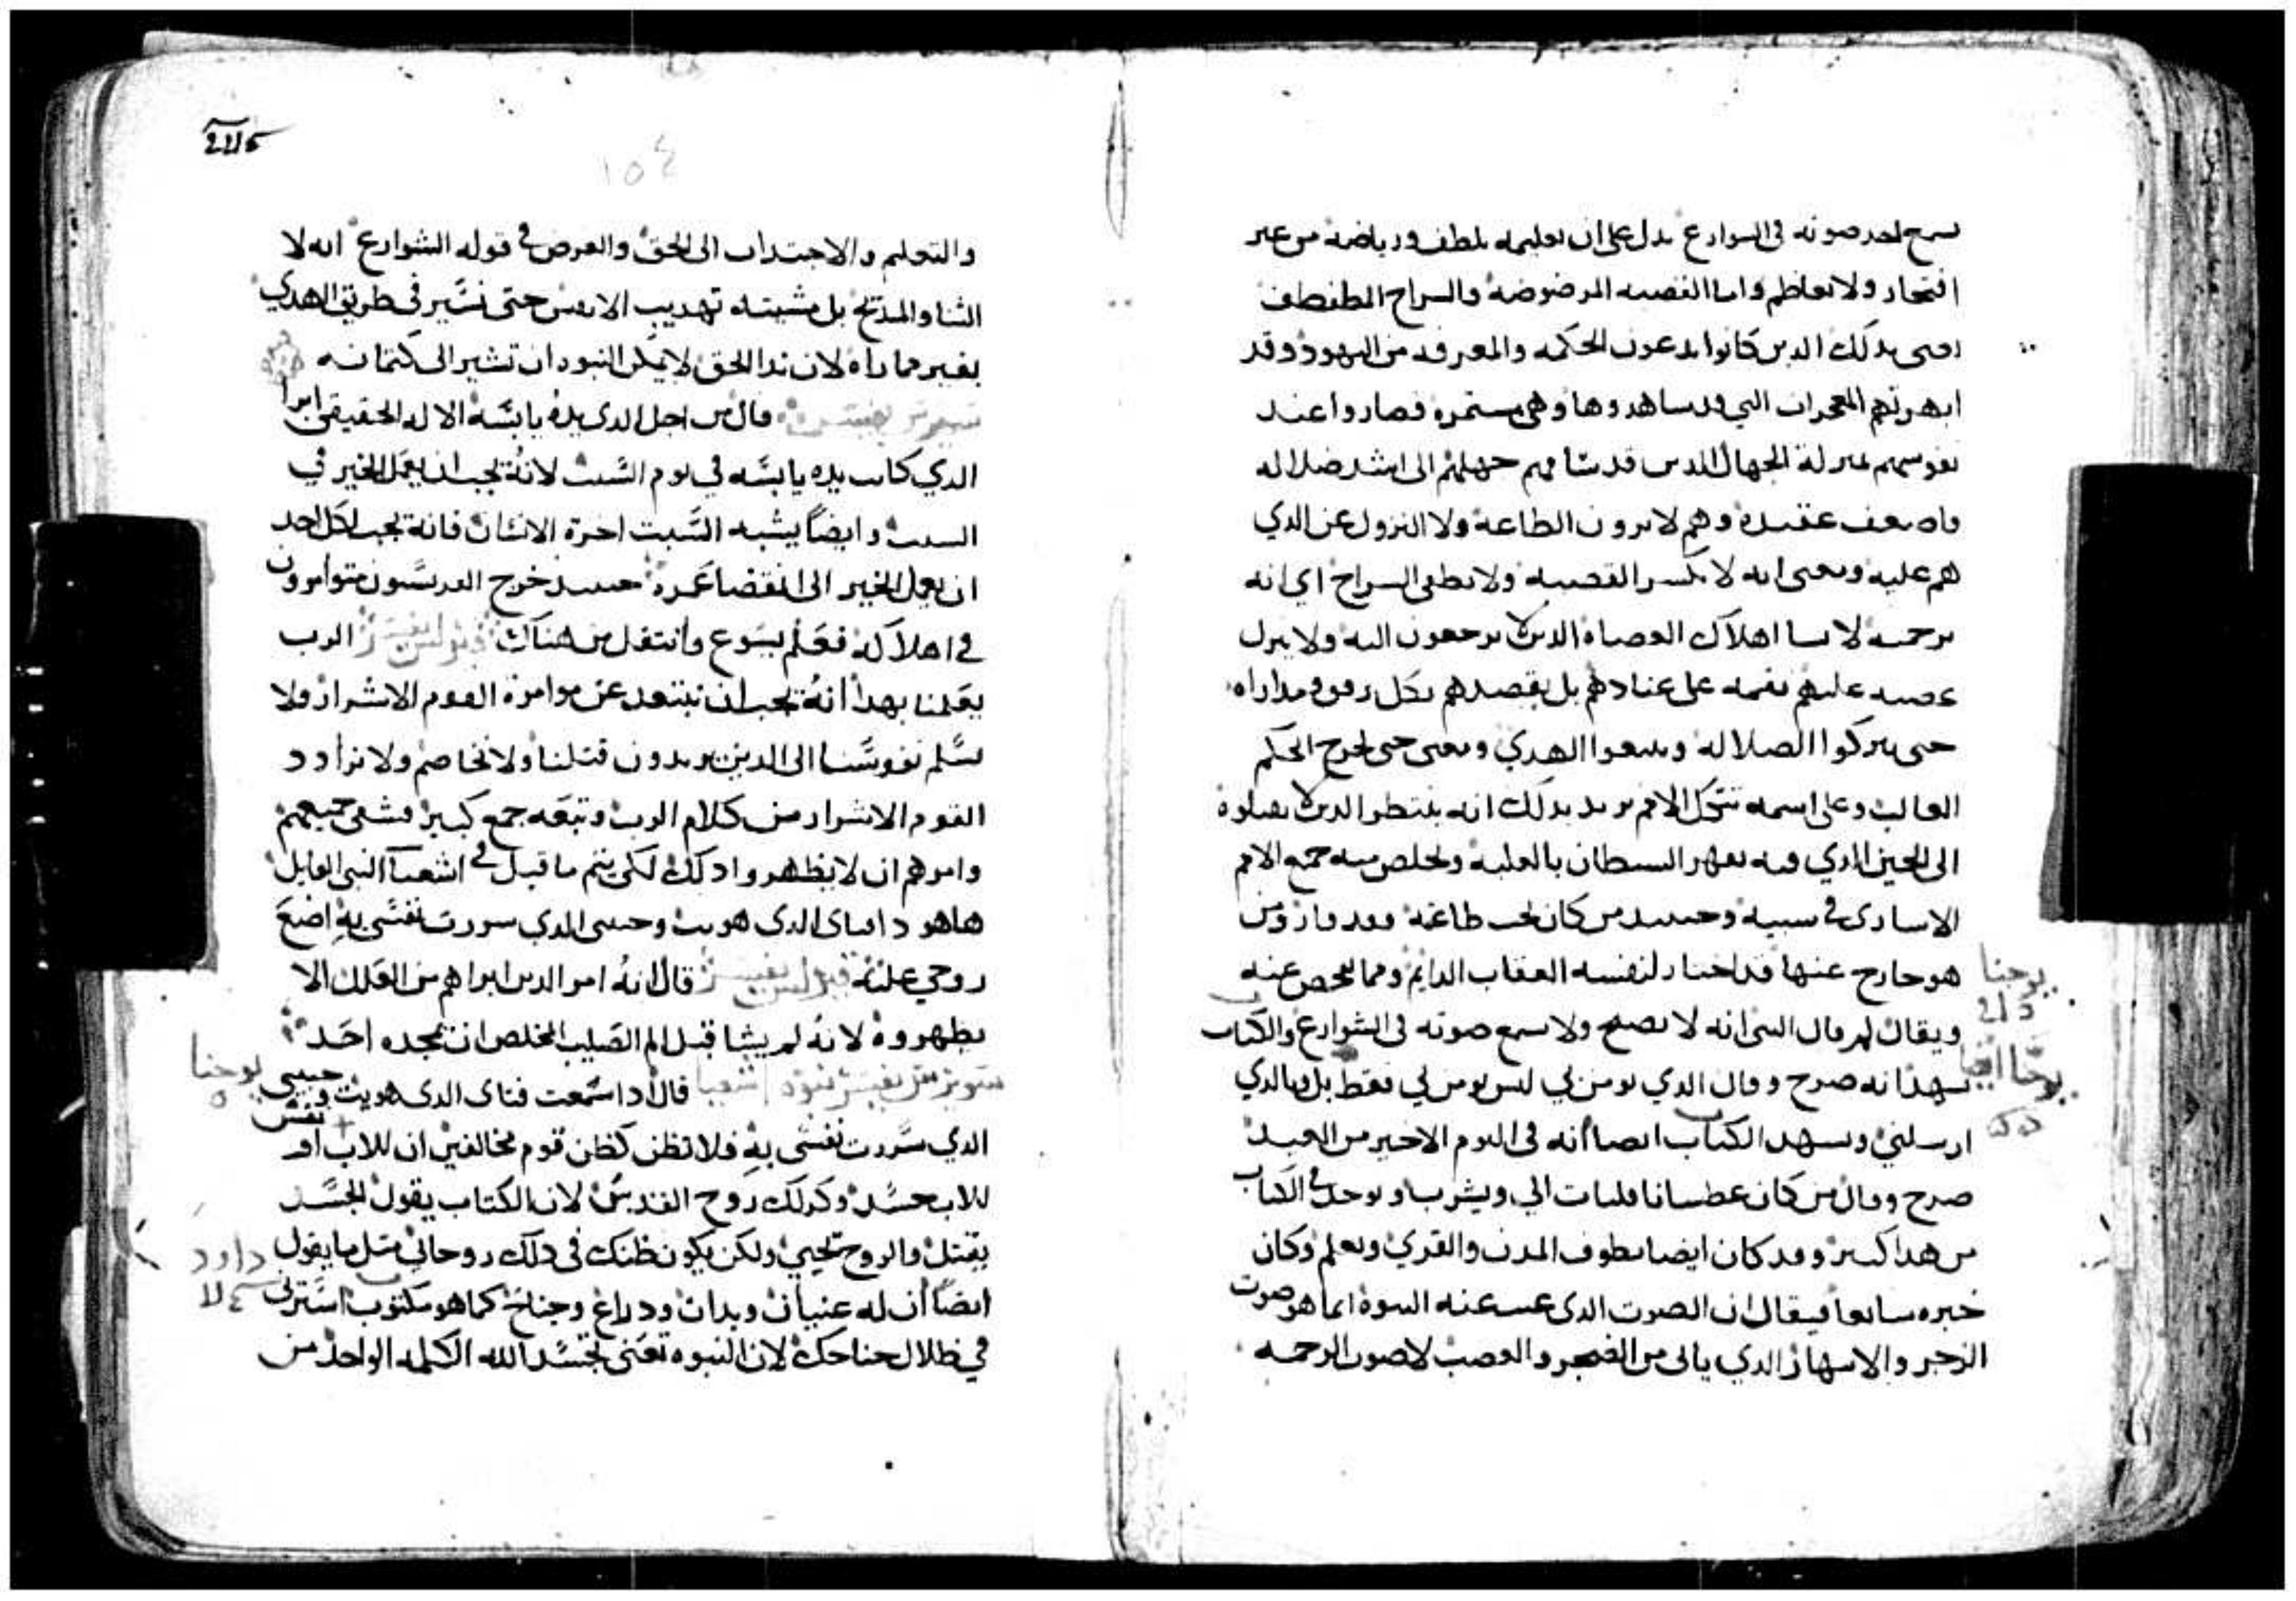 يسمع احد صوته في الشوارع يدل على ان تعليمه بلطف ورياضة من غير
افتخار ولا تعاظم واما القصبه المرضوضة والسراج المطفطف
يعني بذلك الدين كانوا يدعون الحكمه والمعرفه من اليهود وقد
ابهرتهم المعجزات التي قد ساهدوها وهي مستمره فصاروا عند
نفوسهم بمنزلة الجهال الدين قد تناهى بهم جهلهم الى اشد ضلاله
واضعف عقيده وهم لا يرون الطاعة ولا النزول عن الدي
هم عليه ومعنى انه لا يكسر القصبه ولا يطفي السراج اي انه
برحمته لا يشا اهلاك العصاه الدين لا يرجعون اليه ولا ينزل
غضبه عليهم نقمه على عنادهم بل يقصدهم بكل رفق ومداراه
حتى يتركوا الضلاله ويتبعوا الهدي ومعنى حتى يخرج الحكم
الغالب وعلى اسمه تتكل الامم يريد بدلك انه ينتظر الدين لا يقبلوه
الى الحين الدي فيه يقهر الشيطان بالغلبه ويخلص منه جميع الامم
الاسارى في سبيه وحينيد من كان تحت طاعته فقد فاز ومن
هو خارج عنها قد اختار لنفسه العقاب الدايم ومما يفحص عنه
يوحنا
ويقال لم قال النبي انه لا يصيح ولا يسمع صوته في الشوارع والكتاب
يوحنا ايضا
يشهد انه صرخ وقال الدي يومن بي ليس يومن بي فقط بل وبالدي
ارسلني ويشهد الكتاب ايضا انه في اليوم الاخير من العيد
صرخ وقال من كان عطسانا فليات الي ويشرب ويوجد في الكتاب
من هدا كثير وقد كان ايضا يطوف المدن والقري ويعلم وكان
خبره سايعا فيقال ان الصوت الدي عنت عنه النبوة انما هو صوت
الزجر والانتهار الدي ياتي من الضجر والغضب لا صوت الرحمه
١٥٤
والتعليم والاجتداب الى الحق والغرض في قوله الشوارع انه لا
الثنا والمديح بل مشيته تهديب الانفس حتى نسير في طريق الهدي
بغير مماراه لان ندا الحق لا يمكن النبوه ان تشير الى كتمانه
قال من اجل الدي يده يابسة الاله الحقيقي ابرا
الدي كانت يده يابسه في يوم السبت لانه يجب ان يعمل الخير في
السبت وايضا يشبه السبت اخرة الانسان فانه يجب لكل احد
ان يعمل الخير الى انقضا عمره حينيد خرج الفريسيون متوامرون
في اهلاكه فعلم يسوع وانتقل من هناك الرب
يعلمنا بهدا انه يجب ان نبتعد عن موامرة القوم الاشرار ولا
نسلم نفوسنا الى الدين يريدون قتلنا ولا نخاصم ولا نرادد
القوم الاشرار من كلام الرب وتبعه جمع كبير فشفى جميعهم
وامرهم ان لا يظهروا دلك لكي يتم ما قيل في اشعيا النبي القايل
هاهو دا فتاي الدي هويت وحبيبي الدي سررت نفسي به اضع
روحي عليه قال انه امر الدين ابراهم من العلل الا
يظهروه لانه لم يشا قبل الم الصليب المخلص ان يمجده احد
يوحنا
قال ادا سمعت فتاي الدي هويت وحبيبي
الدي سررت نفسي به فلا تظن كظن قوم مخالفين ان للاب او
للابن جسد وكدلك روح القدس لان الكتاب يقول الجسد
يقتل والروح تحيي ولكن يكون ظنك في دلك روحاني مثل ما يقول
داود
ايضا ان له عنيان ويدان ودراع وجناح كما هو مكتوب استرني
في ظلال جناحك لان النبوه تعني تجسد الله الكلمه الواحد من